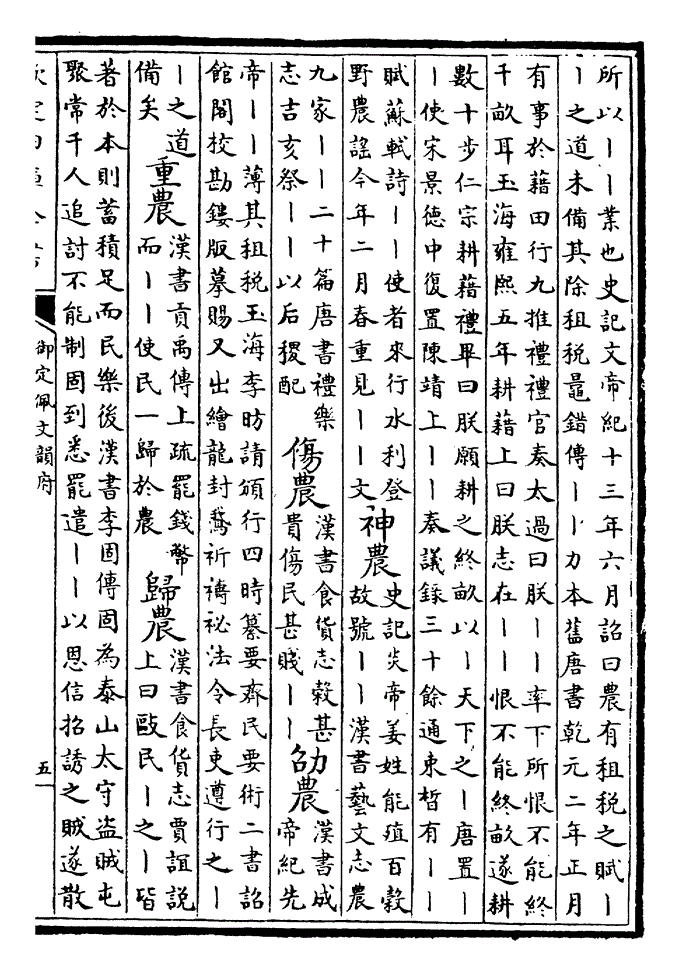 所以丨丨業也史記文帝紀十三年六月詔曰農有租税之賦丨
丨之道未備其除租税鼂錯傳丨丨力本舊唐書乾元二年正月
有事於藉田行九推禮禮官奏太過曰朕丨丨率下所恨不能終
千畝耳玉海雍熙五年耕藉上曰朕志在丨丨恨不能終畝遂耕
數十步仁宗耕藉禮畢曰朕願耕之終畝以丨天下之丨唐置丨
丨使宋景德中復置陳靖上丨丨奏議録三十餘通束晳有丨丨
賦蘇軾詩丨丨使者來行水利登
野農謡今年二月春重見丨丨文
神農
史記炎帝姜姓能殖百穀
故號丨丨漢書藝文志農
九家丨丨二十篇唐書禮樂
志吉亥祭丨丨以后稷配
傷農
漢書食貨志榖甚
貴傷民甚賤丨丨
劭農
漢書成
帝紀先
帝丨丨薄其租税玉海李昉請頒行四時纂要齊民要術二書詔
館閣校勘鏤版摹賜又出繪龍封鵞祈禱祕法令長吏遵行之丨
丨之道
備矣
重農
漢書貢禹傳上疏罷錢幣
而丨丨使民一歸於農
歸農
漢書食貨志賈誼説
上曰敺民丨之丨皆
著於本則蓄積足而民樂後漢書李固傳固為泰山太守盜賊屯
聚常千人追討不能制固到悉罷遣丨丨以恩信招誘之賊遂散
欽定四庫全書
御定佩文韻府
五